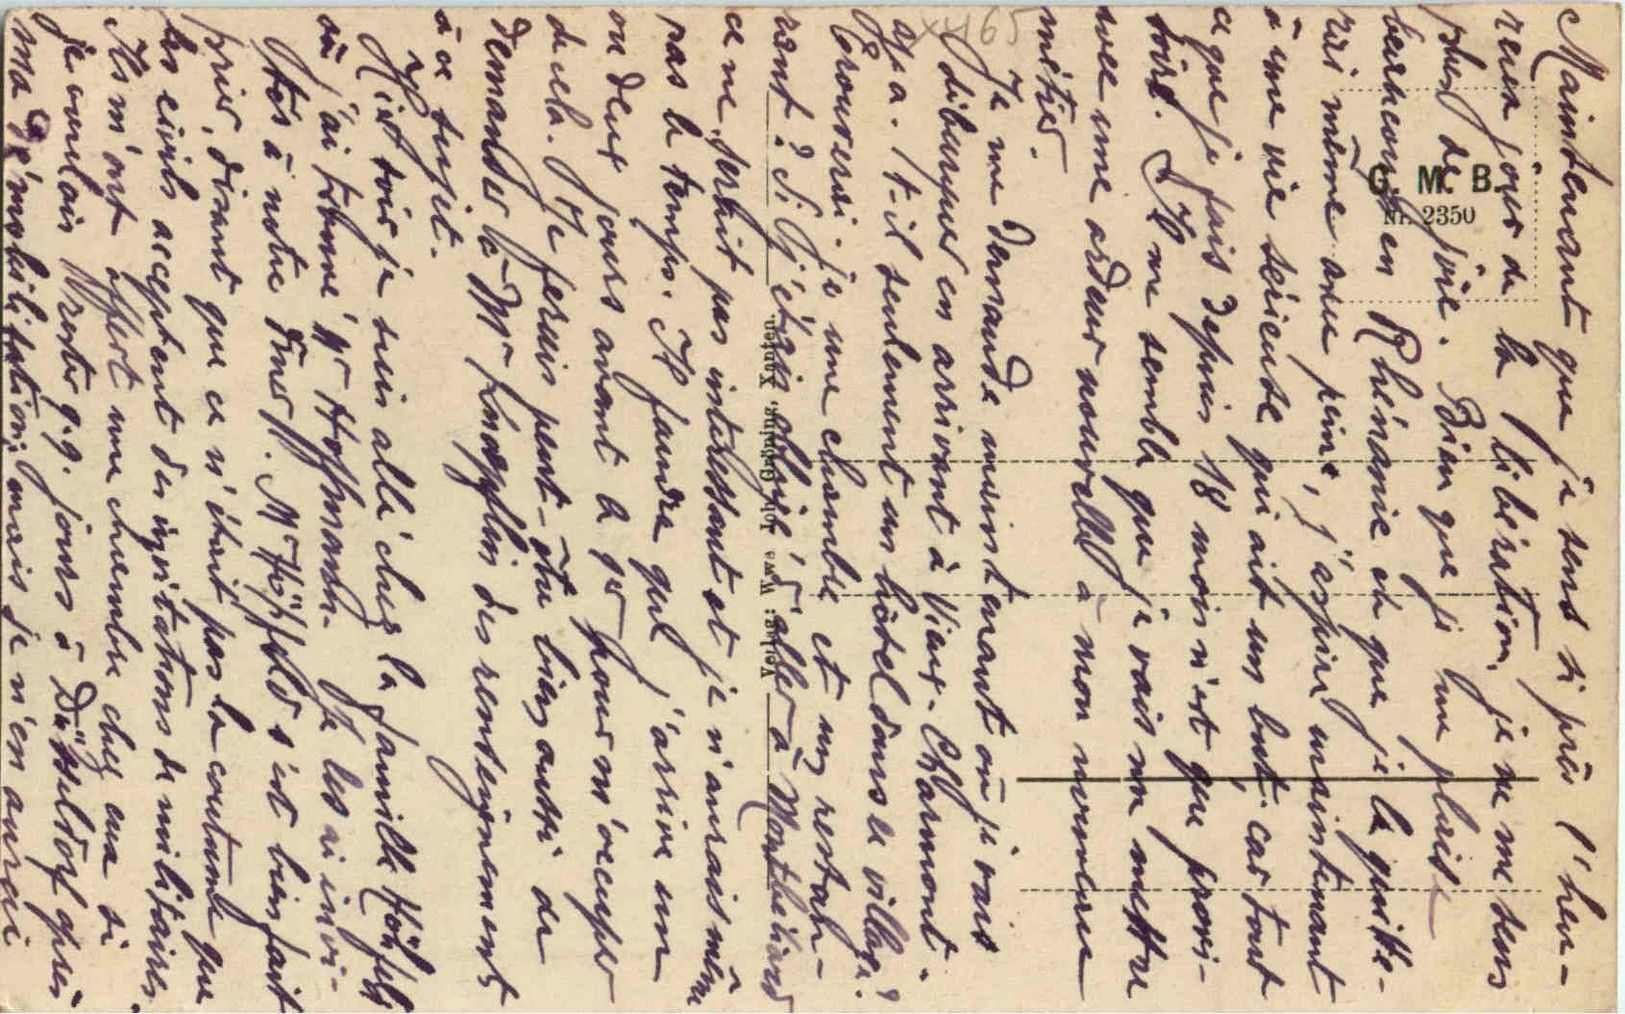 Maintenant que je sens si près l'heu-
reux jour de la libération, je ne me sens
plus de joie. Bien que je me plaise
beaucoup en Rhénanie et que je la quitte-
rai même avec peine, j'aspire maintenant
à une vie sérieuse qui ait un but, car tout
ce que je fais depuis 18 mois n'est que provi-
soire. Il me semble que je vais me mettre
avec une ardeur nouvelle à mon nouveau
métier.
Je me demande maintenant où je vais
débarquer en arrivant à Vieux-Charmont.
Y a-t-il seulement un hôtel dans le village?
Trouverai-je une chambre et un restau-
rant? Si j'étais obligé d'aller à Montbéliard
ce ne serait pas intéressant et je n'aurais même
pas le temps. Il faudra que j'arrive un
ou deux jours avant le 9r pour m'occuper
de cela. Je ferais peut-être bien aussi de
demander à Mr des renseignements
à ce sujet.
Hier soir je suis allé chez la famille Höhfeld
où j'ai trouvé Mr Hoffmann. Je les ai invi-
tés à notre dîner. Mr Höhfeld s'est bien fait
prier, disant que ce n'était pas la coutume que
les civils acceptent des invitations de militaires.
Ils m'ont offert une chambre chez eux si
je voulais rester q.q. jours à Düsseldorf après
ma démobilisation; mais je n'en aurai
G. M. B.
Nr. 2350
Verlag: Wwe Joh. Gesthing, Xanten.
XH65